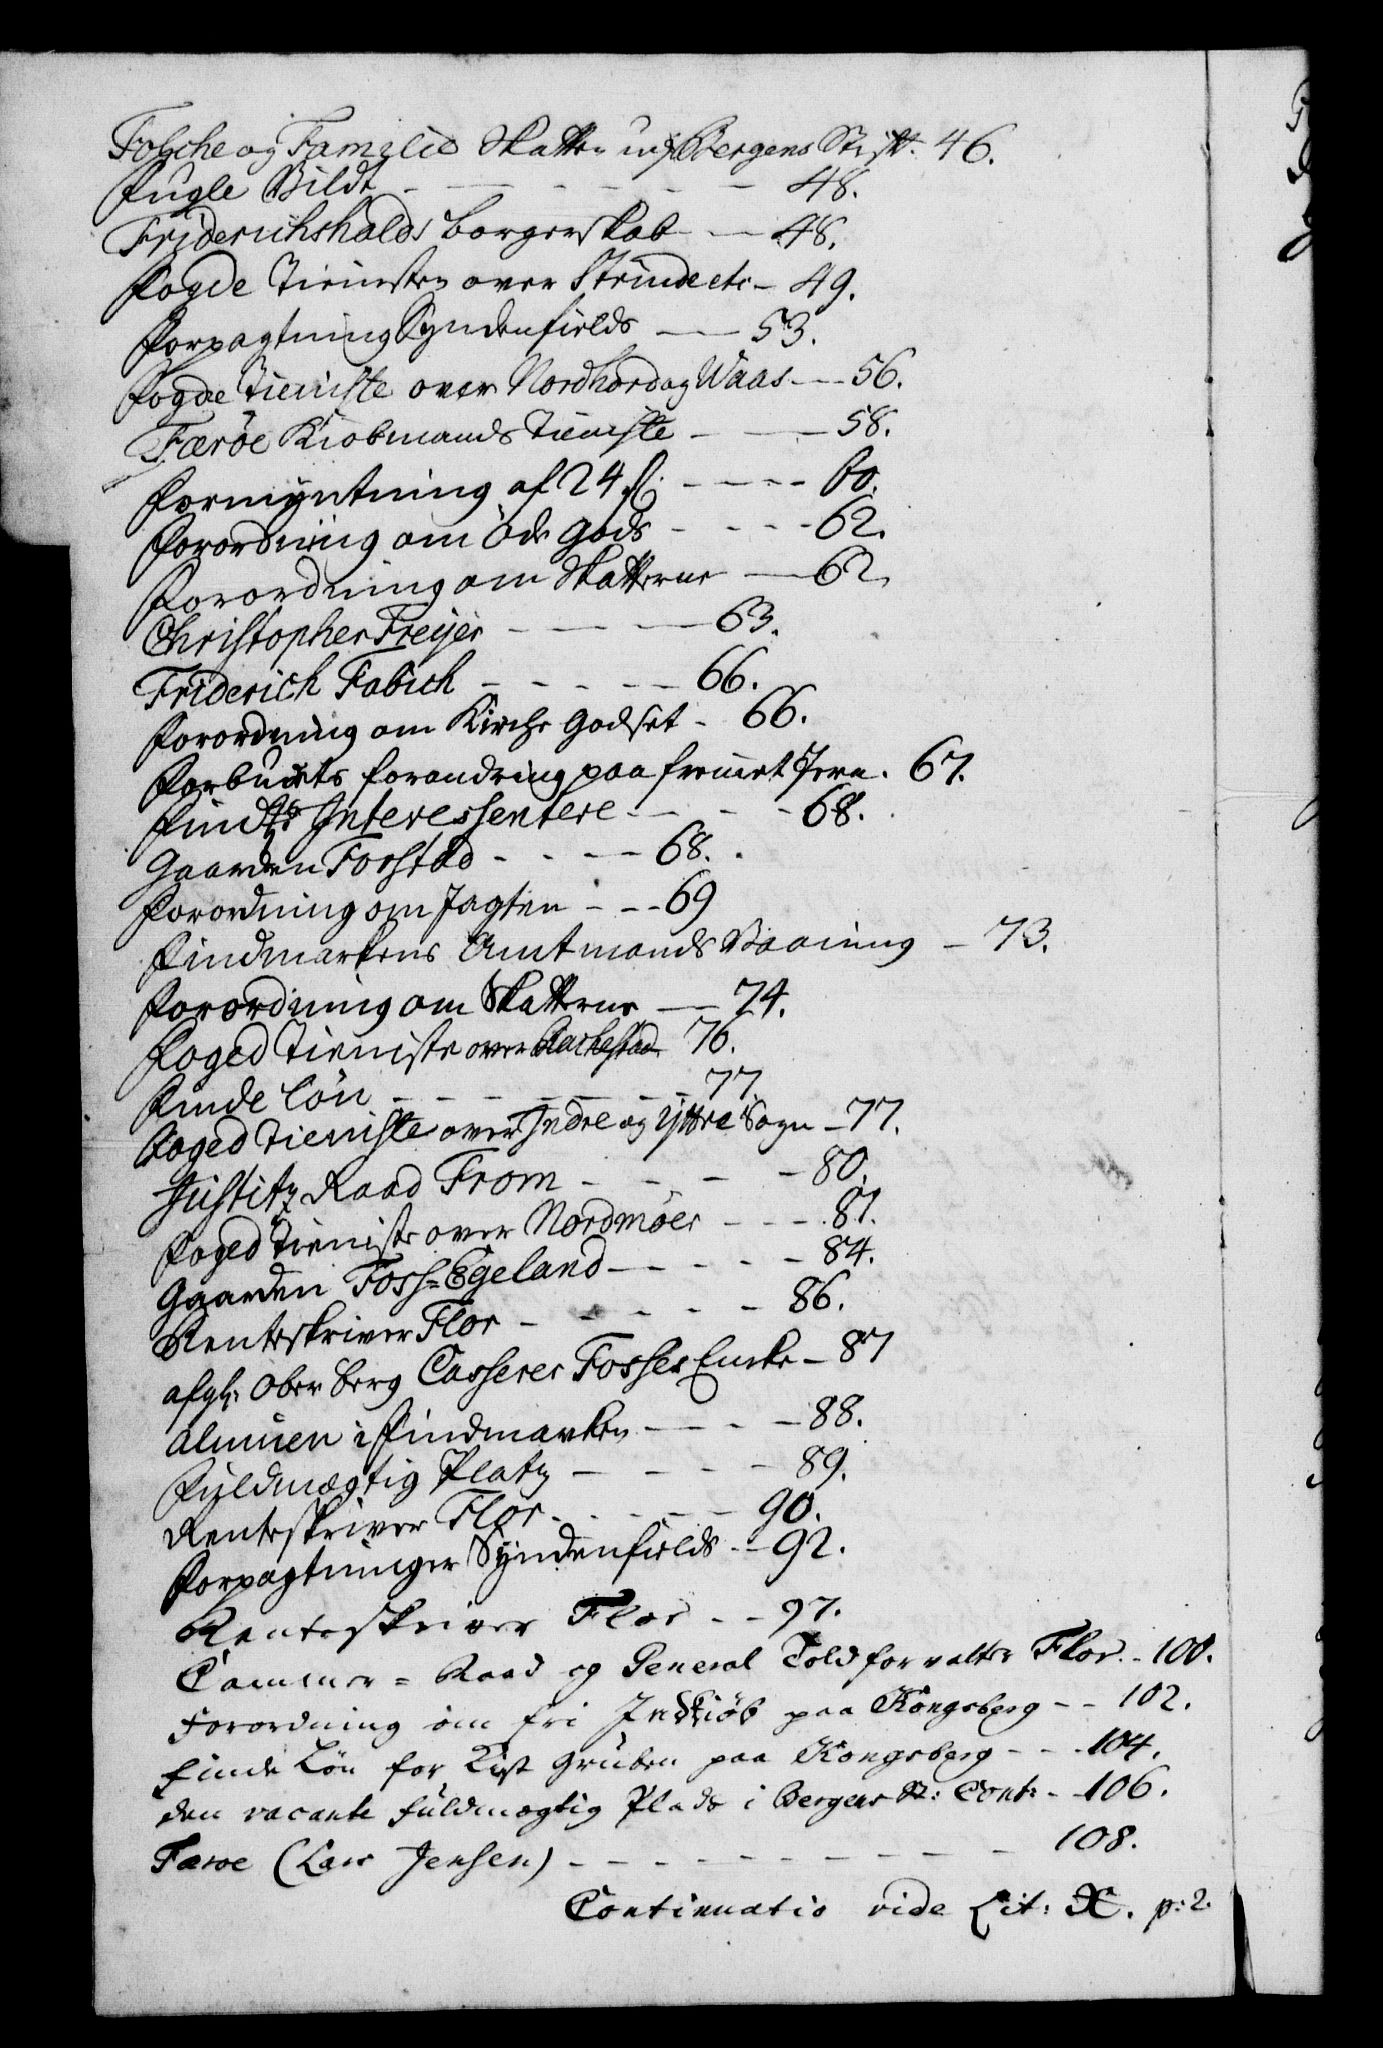 Folche og Familie Skatten udj Bergens Stift. 46.
Fugle Vildt - - - - - - - 48.
Friderichshalds borgerskab - - 48.
Fogde Tienesten over Strinde etc - 49.
Forpagtning Syndenfields - - 53.
Fogde Tieniste over Nordhord og Waas - - 56.
Færöe Kiobmands Tieniste - - - 58.
Formyntning af 24 ßl. - - - - 60.
Forordning om öde gods - - - - 62.
Forordning om Skatterne - - 62.
Christopher Freyer - - - - 63.
Friderich Fabich - - - - - 66.
Forordning om Kirche Godset - 66.
Forbudets forandring paa fremet Jern. 67.
Interessentere - - - - 68.
Gaarden Forstad - - - - 68.
Forordning om Jagten - - - 69
Findmarkens Amtmands Vaaning - 73.
Forordning om Skatterne - - 74.
Foged Tieniste over Aachestad 76.
Finde lön - - - - - - - 77.
Foged Tieniste over Indre og yttre Sogn - 77.
Justitz Raad From - - - - - 80.
Foged Tieniste over Nordmöer - - - 81.
Gaarden Foss-Egeland - - - - - 84.
Renteskriver Flor - - - - - - 86.
afgl: Ober Berg Casserer Fosses Encke - 87
Almuen i Findmarken - - - - 88.
Fuldmægtig Platz - - - - - 89.
Renteskriver Flor - - - - - 90.
Forpagtninger Syndenfields - - 92.
Renteskriver Flor - - 97.
Cammer = Raad og General Toldforvalter Flor. - 100.
Forordning om fri Indkiöb paa Kongsberg - - 102.
Finde Lön for Kist Gruben paa Kongsberg - - - 104.
den vacante fuldmægtig Plads i Bergens St: Cont: - - 106.
Færoe (Lars Jensen) - - - - - - - - - - 108.
Continuatio vide Lit: X. p: 2.